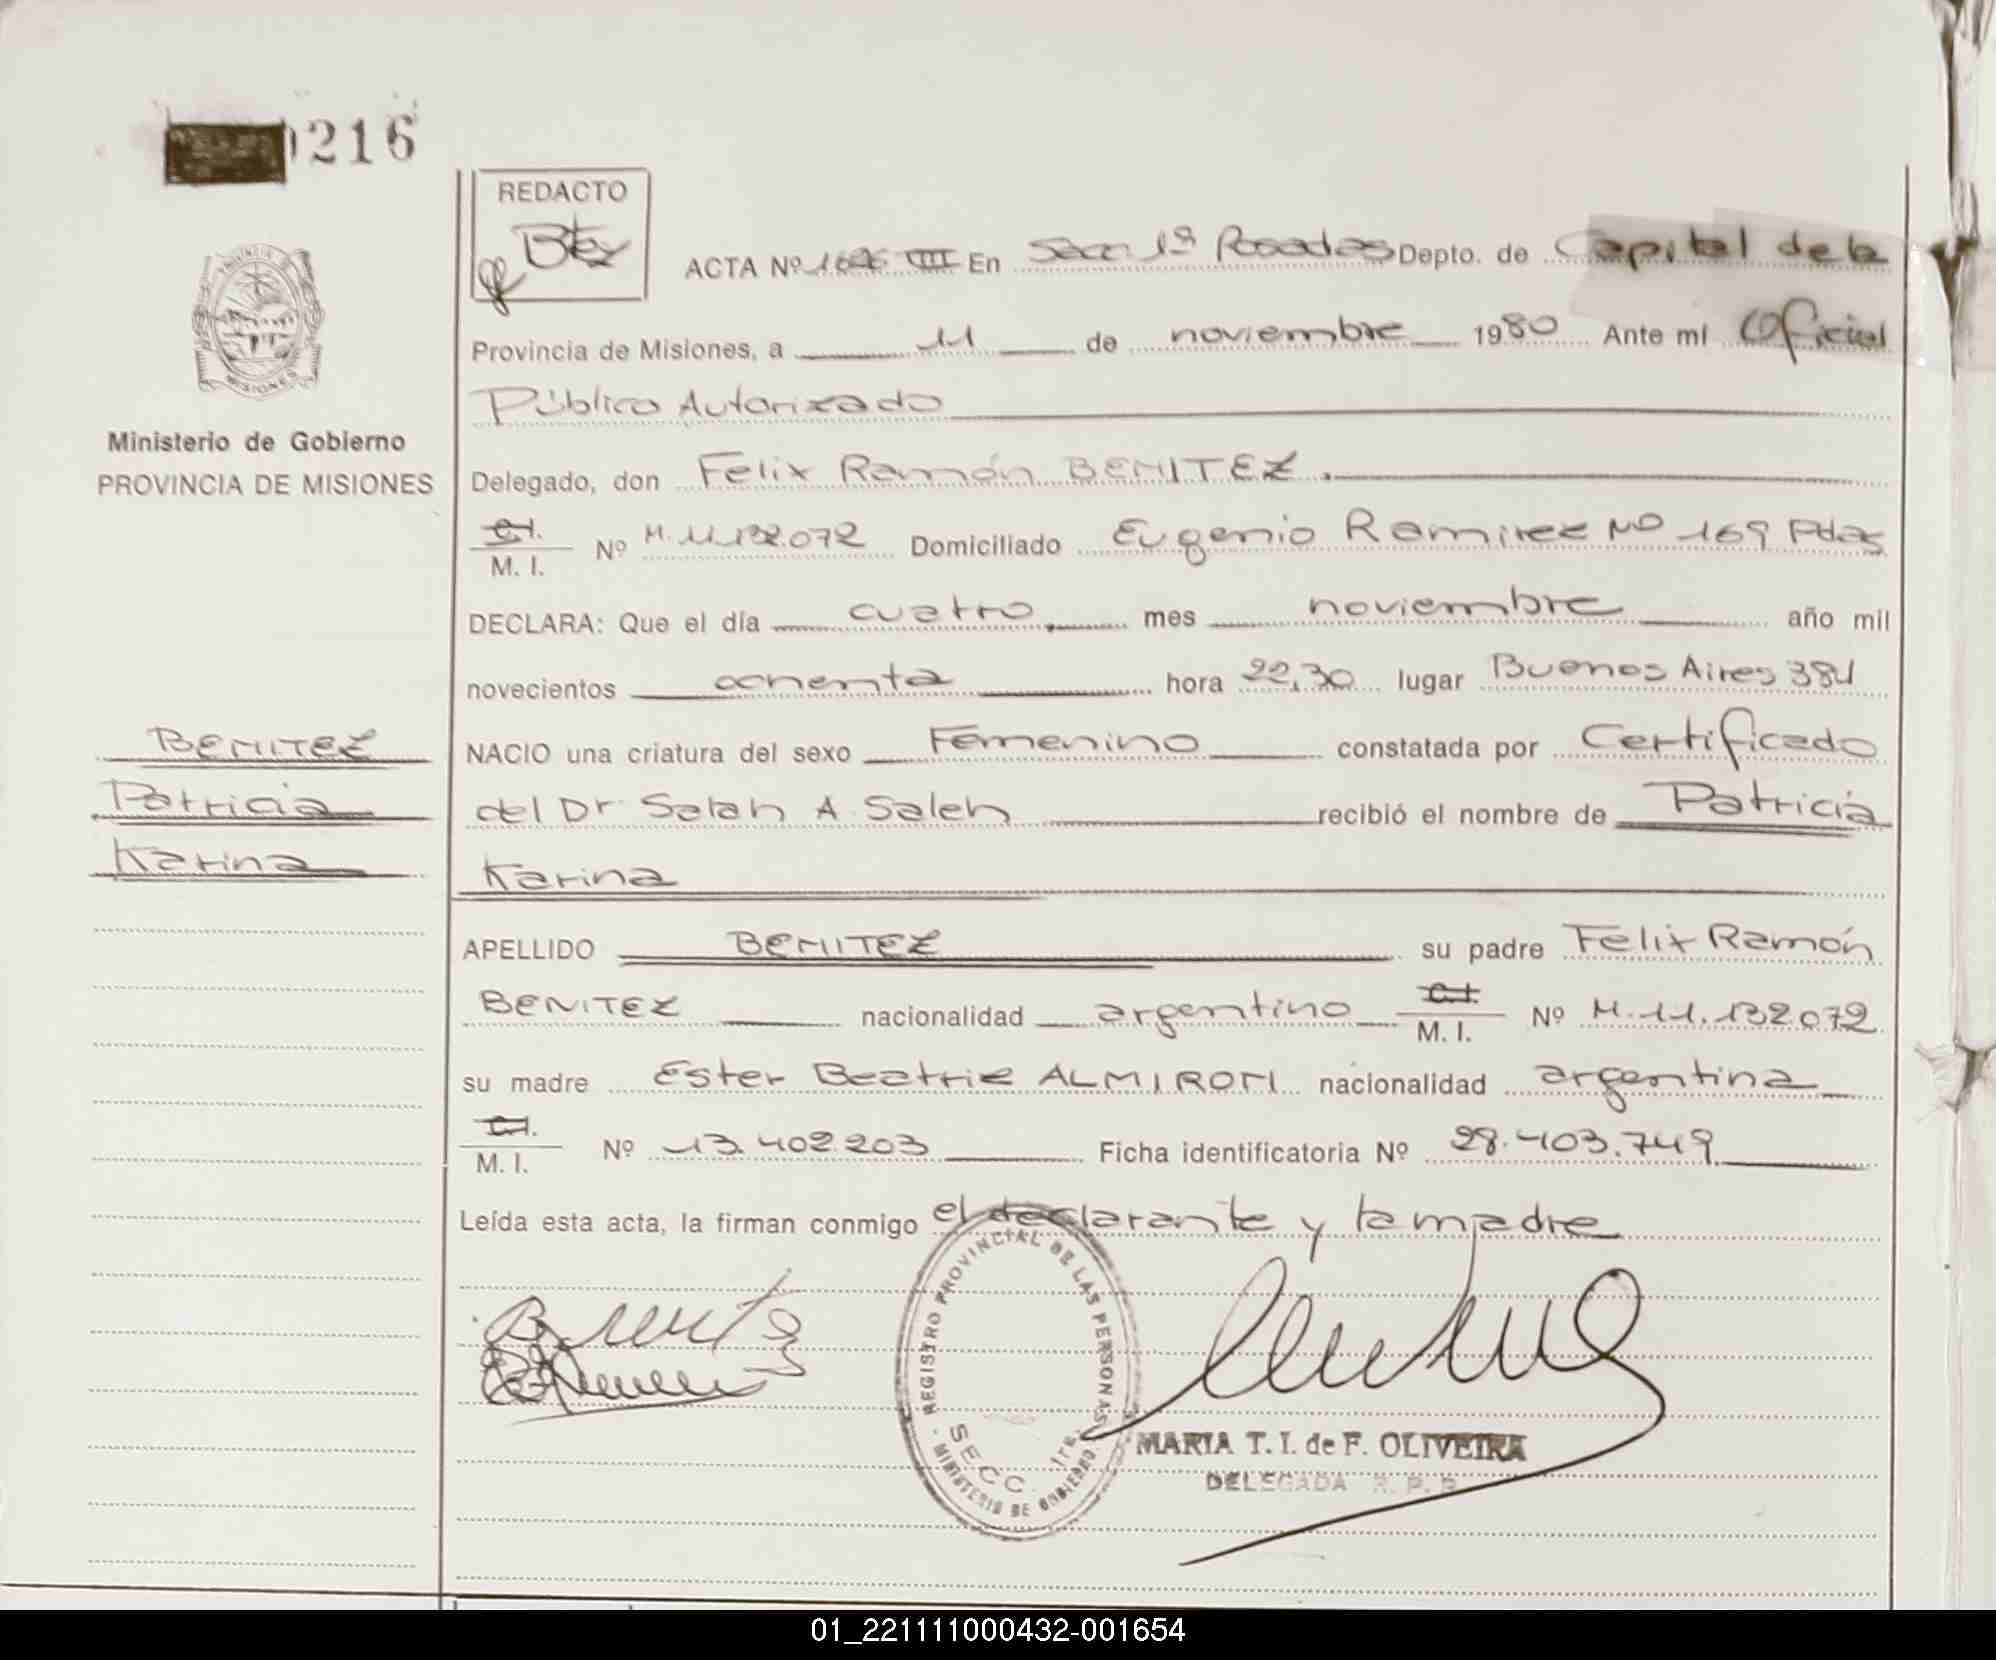 216
REDACTO
ACTA Nº VIII En Secc 1ª Posadas Depto. de Capital de la
Provincia de Misiones, a 11 de noviembre 1980 Ante mí Oficial
Público Autorizado
Ministerio de Gobierno
PROVINCIA DE MISIONES
Delegado, don Felix Ramón BENITEZ.
C.I.
M. I. Nº M. 11.132.072 Domiciliado Eugenio Ramirez Nº 169 Pdas
DECLARA: Que el día cuatro mes noviembre año mil
novecientos ochenta hora 22,30 lugar Buenos Aires 381
BENITEZ
Patricia
Karina
NACIO una criatura del sexo Femenino constatada por Certificado
del Dr. Salah A. Saleh recibió el nombre de Patricia
Karina
APELLIDO BENITEZ su padre Felix Ramón
BENITEZ nacionalidad argentino C.I. M. I. Nº M. 11.132.072
su madre Ester Beatriz ALMIRON nacionalidad argentina
C.I.
M. I. Nº 13.402.203 Ficha identificatoria Nº 28.403.749
Leída esta acta, la firman conmigo el declarante y la madre
REGISTRO PROVINCIAL DE LAS PERSONAS
SECC. 1ra.
MINISTERIO DE GOBIERNO
MARIA T. I. de F. OLIVEIRA
DELEGADA R. P. P.
01_221111000432-001654